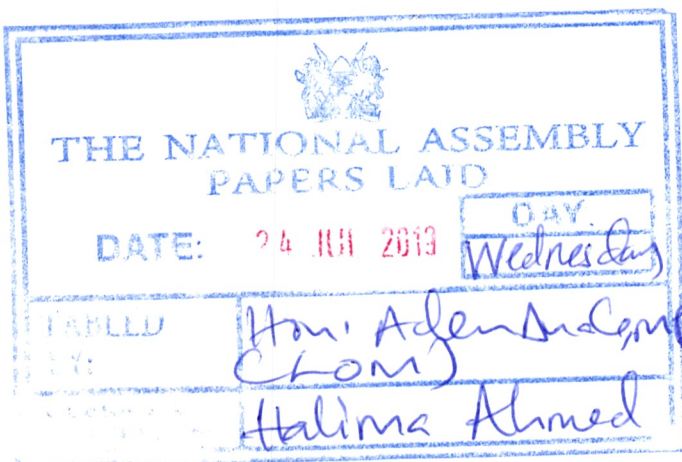 THE NATIONAL ASSEMBLY
PAPERS LAID
DAY.
DATE: 24 JUL 2019 Wednesday
TABLED Hon. Aden
BY: (LOM)
Halima Ahmed